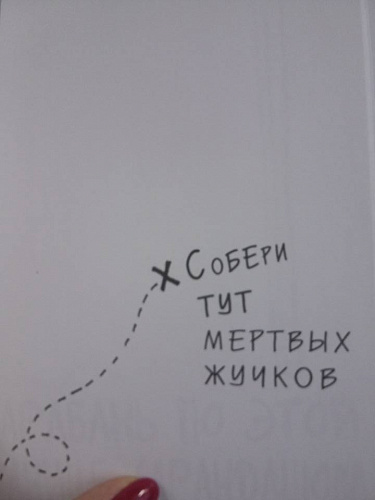 Собери
тут
мертвых
жучков